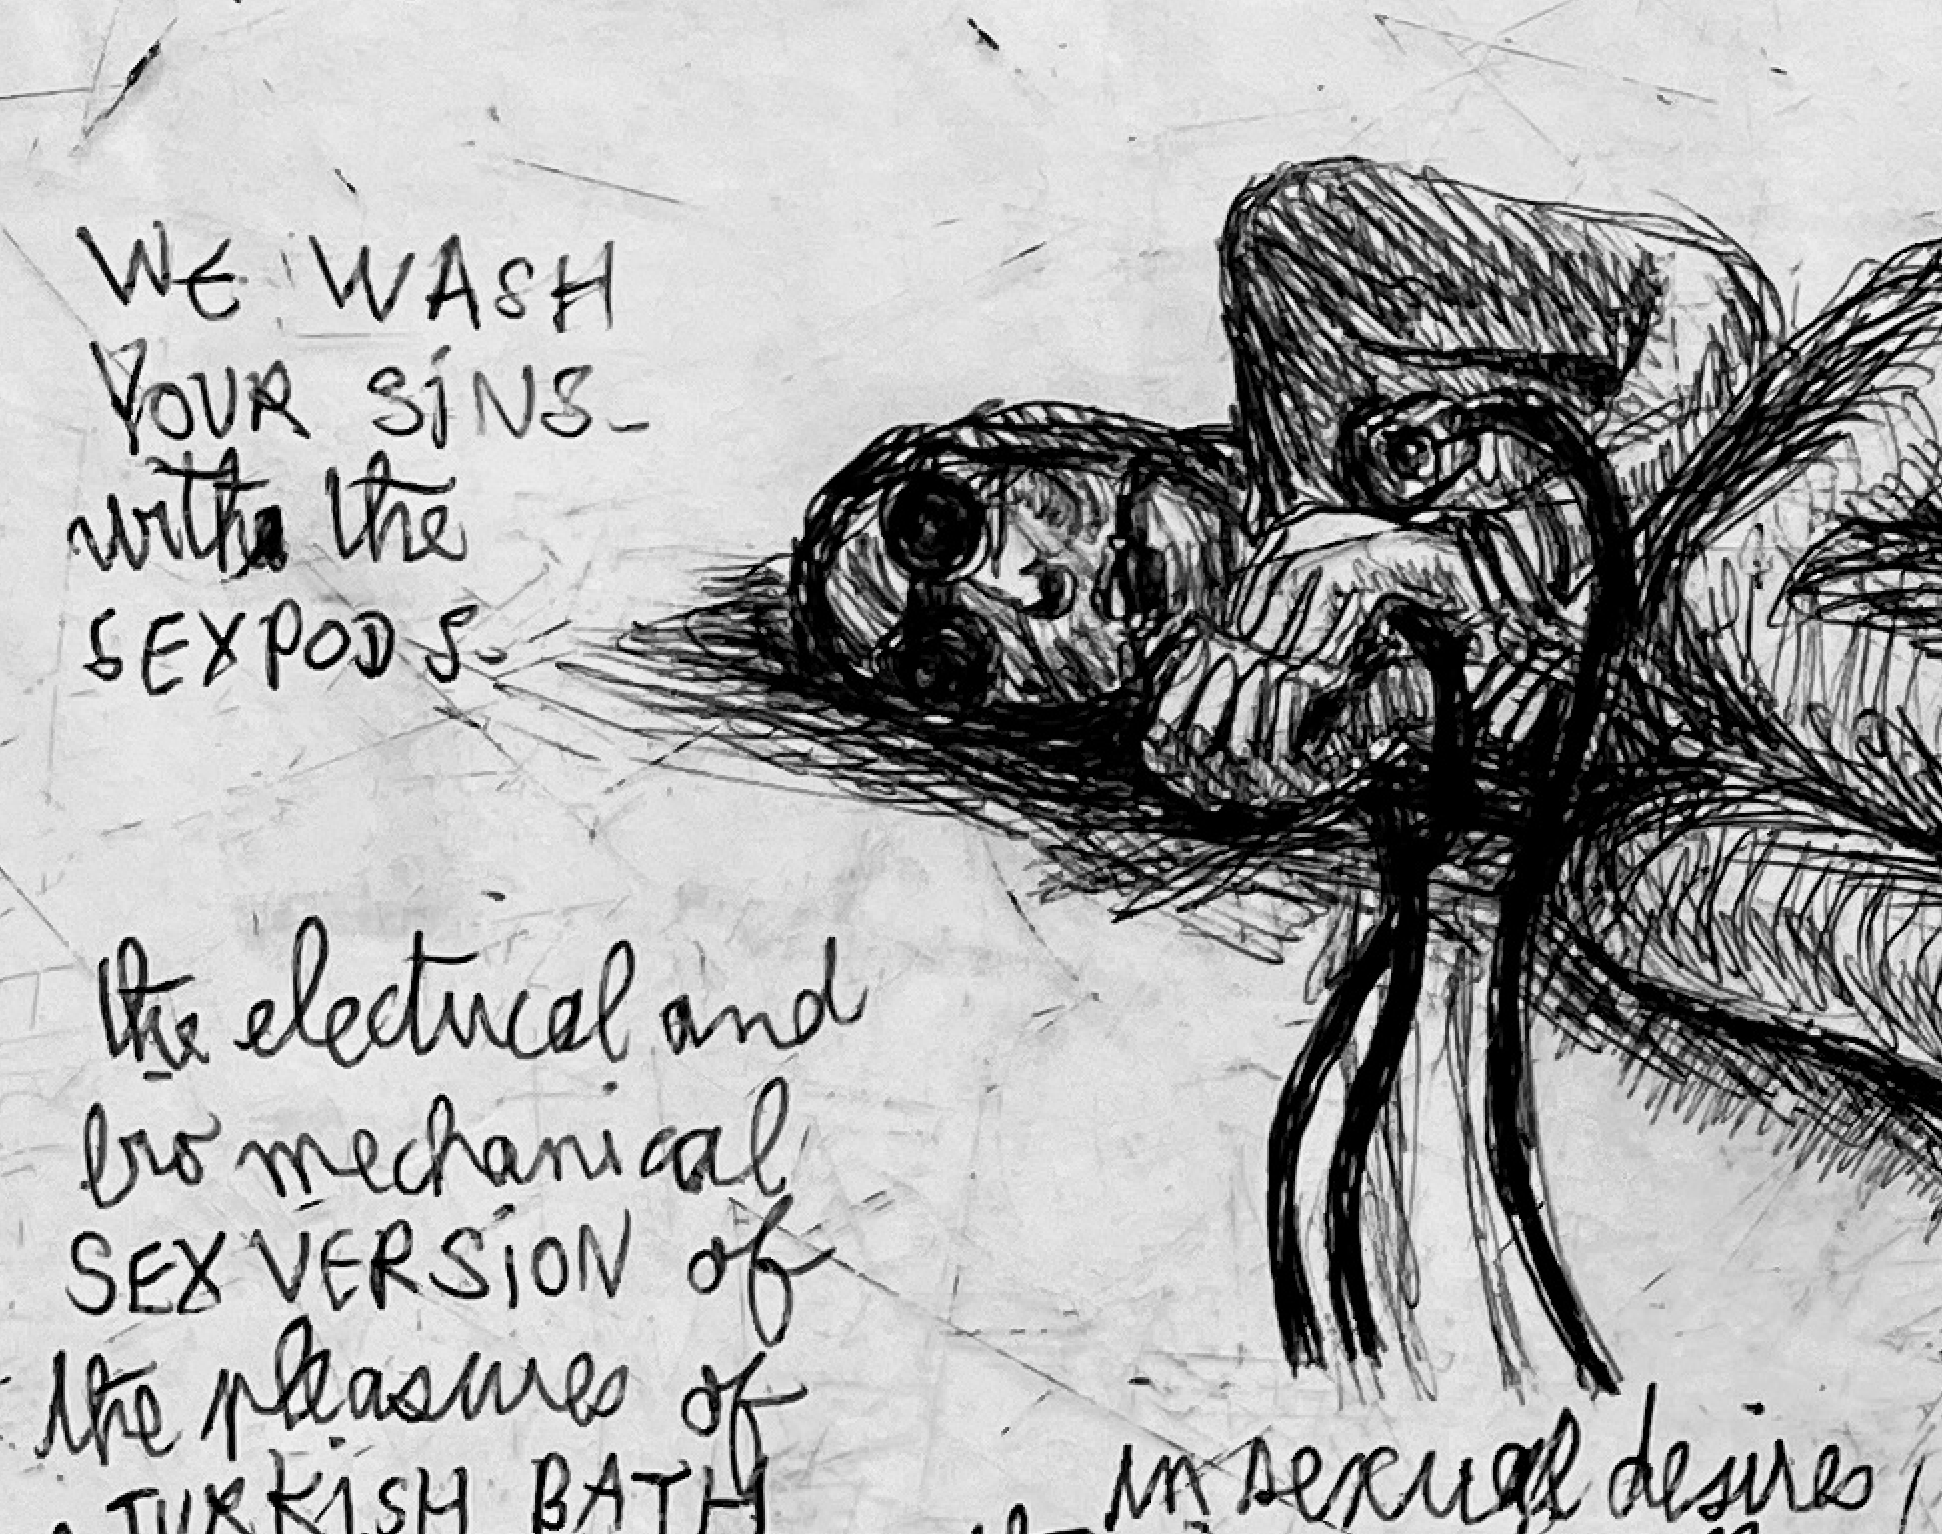 WE WASH
YOUR SINS
with the
SEXPODS.
the electrical and
bio mechanical
SEX VERSION of
the pleasures of
TURKISH BATH
in sexual desires,